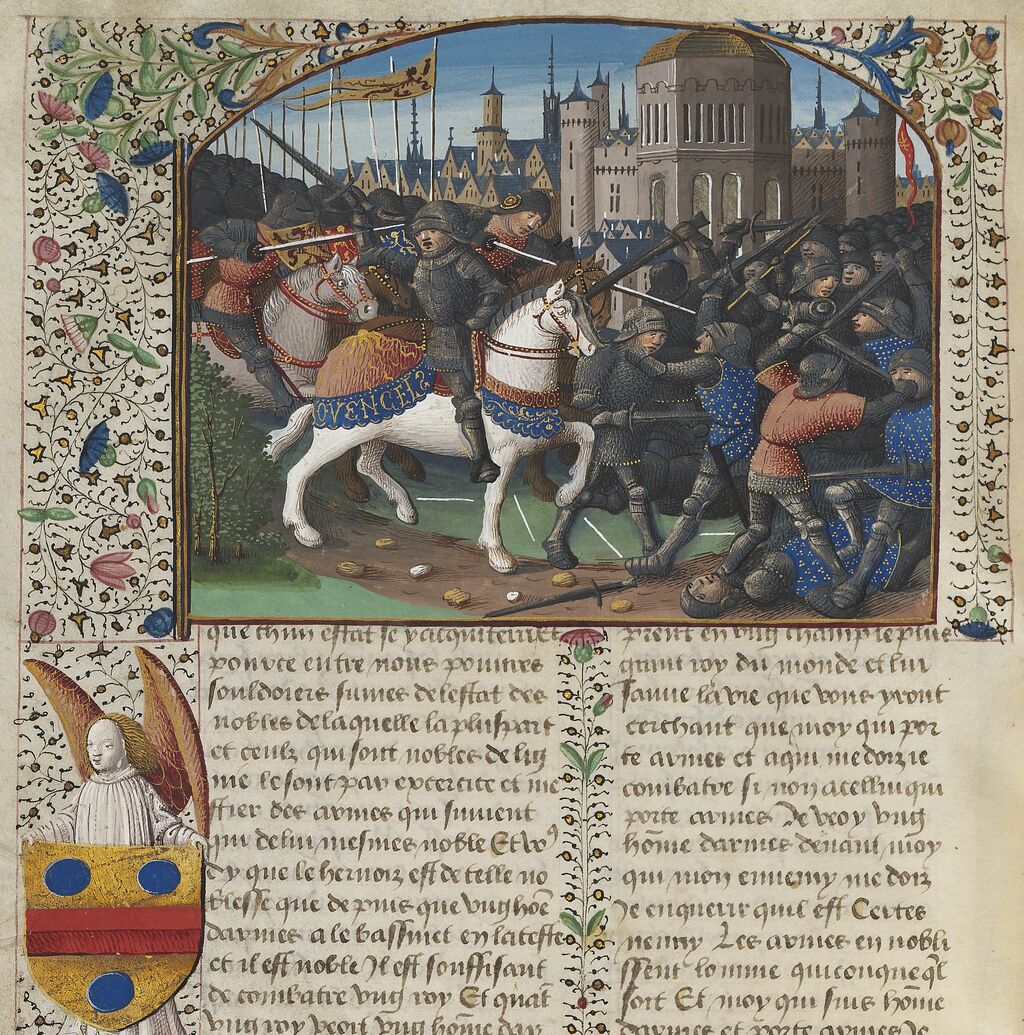 OVENCEL
que chun estat se y acquiteroiet
pouvre entre nous pouvres
souldoiers sumes de lestat des
nobles de laquelle la pluspart
et ceulx qui sont nobles de lig
me le sont par excercice et me
stier des armes qui suivent
qui de lui mesmes noble Et voꝯ
dy que le hernoiz est de telle no
blesse que depuis que ung hōe
darmes a le bassinet en la teste
et il est noble Il est souffisant
de combatre ung roy Et quāt
ung roy veoit ung home dar
prent en ung champ le plus
grant roy du monde et lui
sauve la vie que vous yront
cerchant que moy qui por
te armes et a qui me doiz ie
combatre si non a cellui qui
porte armes Je veoy ung
hōme darmes devant moy
qui mon ennemy me doiz
Je enquerir quil est Certes
nenny Les armes ennobli
ssent lomme quiconque ql
soit Et moy qui suis hōme
darmes et porte armes Je